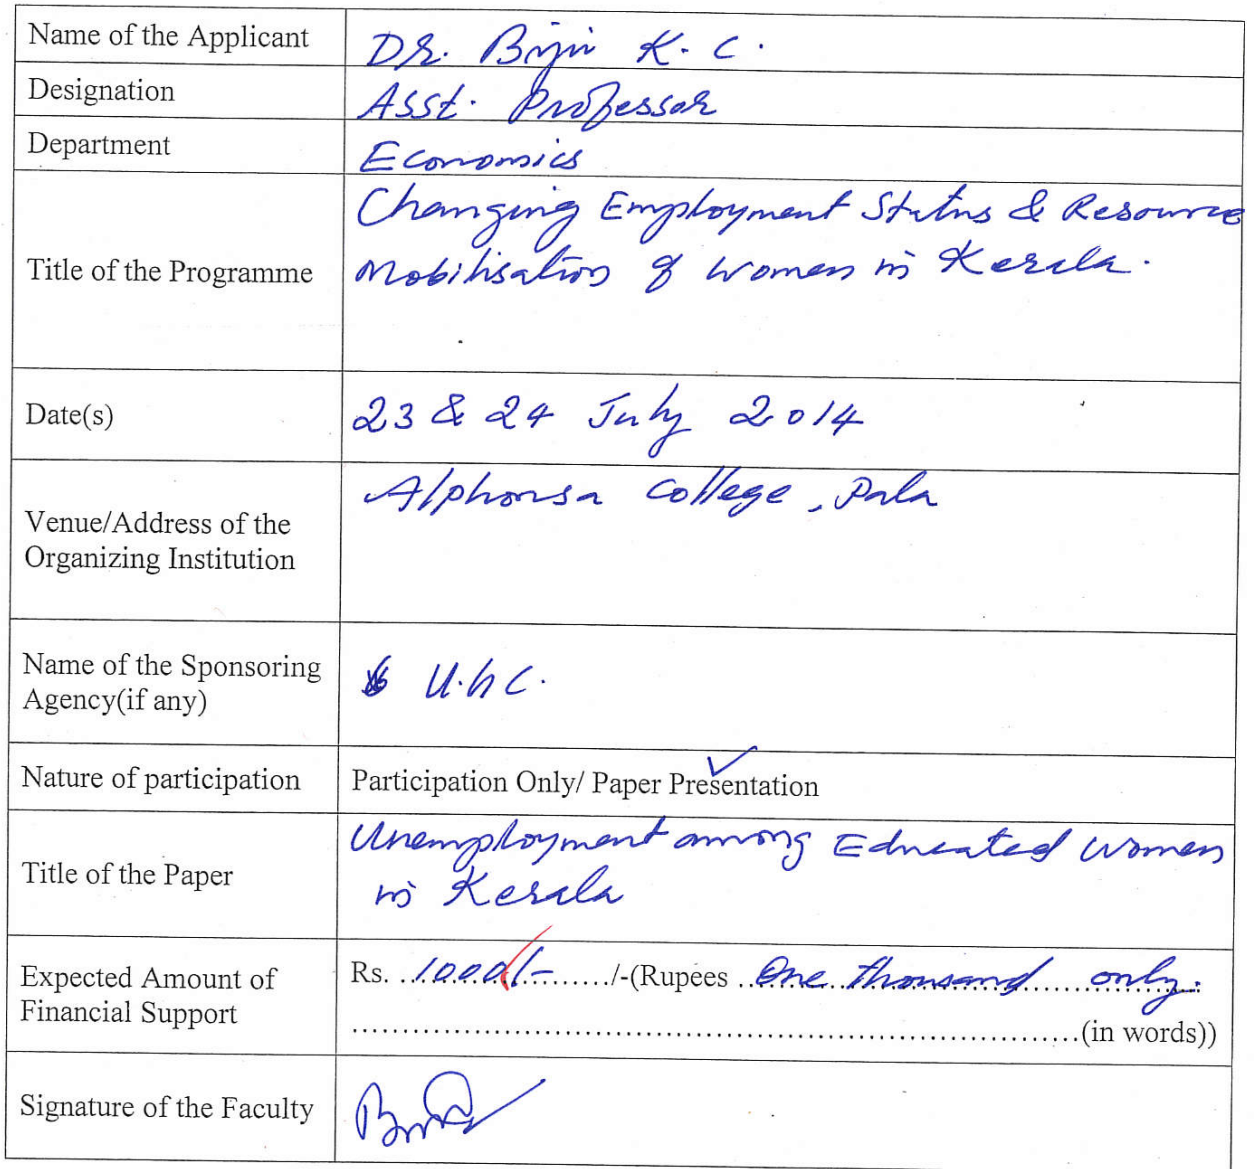 Name of the Applicant
Dr. Bijin K. C.
Designation
Asst. Professor
Department
Economics
Title of the Programme
Changing Employment Status & Resource
Mobilisation of Women in Kerala.
Date(s)
23 & 24 July 2014
Venue/Address of the
Organizing Institution
Alphonsa College, Pala
Name of the Sponsoring
Agency(if any)
U.G.C.
Nature of participation
Participation Only/ Paper Presentation
Title of the Paper
Unemployment among Educated Women
in Kerala
Expected Amount of
Financial Support
Rs. ..1000/-......../-(Rupees ..One thousand only.
..............................................................................(in words))
Signature of the Faculty